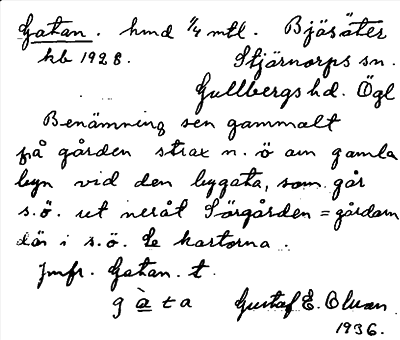 Gatan. hmd 1/4 mtl. Bjäsäter
kb 1928. Stjärnorps sn.
Gullbergs hd. Ögl
Benämning sen gammalt
på gården strax n. ö om gamla
byn vid den bygata, som går
s.ö. ut neråt Sörgården = gårdarna
där i s.ö. Se kartorna.
Jmfr. Gatan. t.
gàta Gustaf E. Olsson
1936.